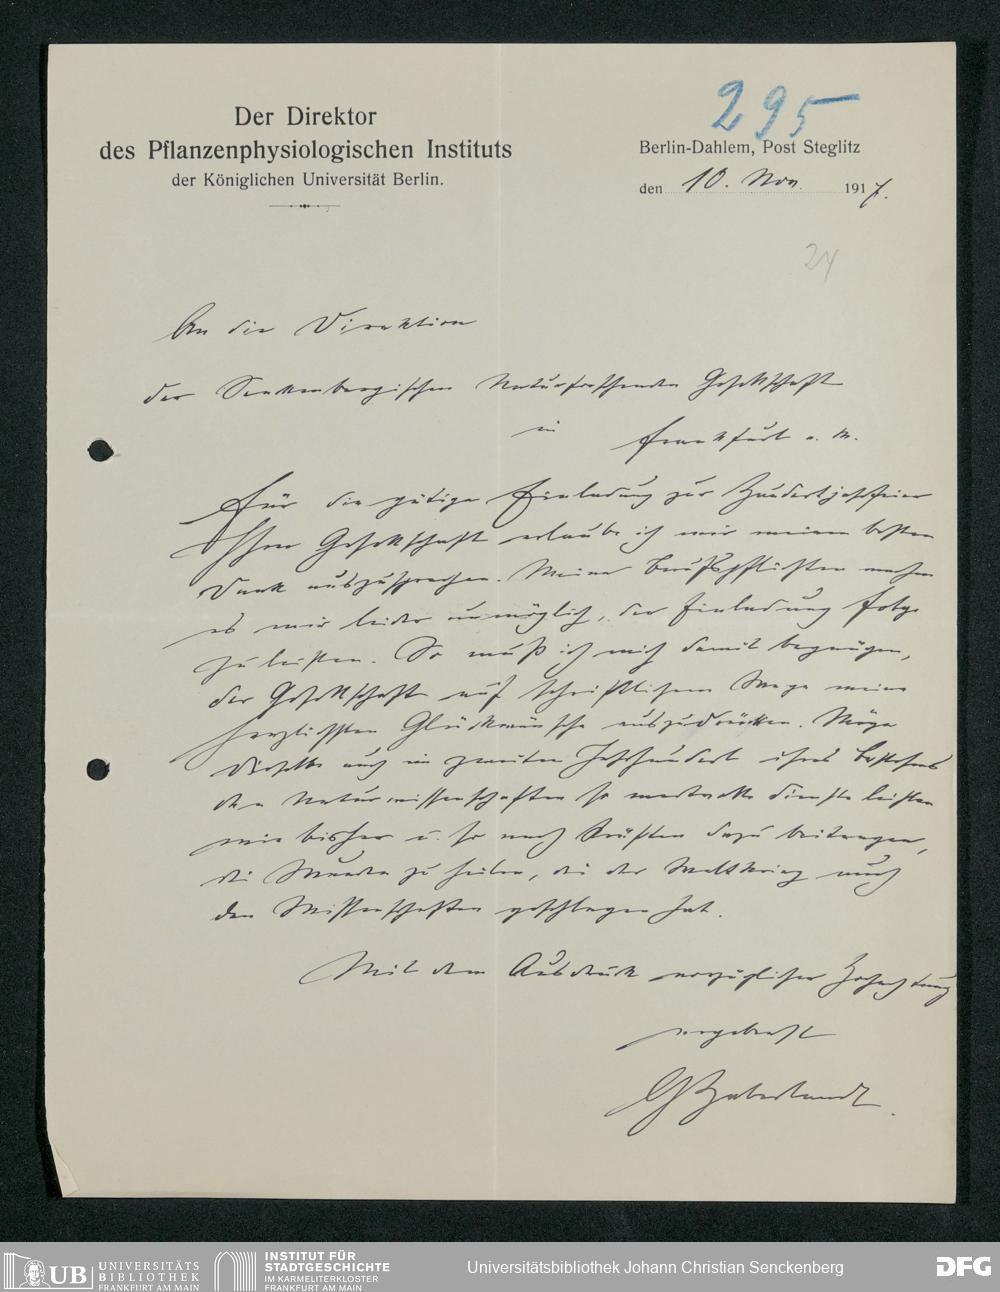 295
Der Direktor
des Pflanzenphysiologischen Instituts
der Königlichen Universität Berlin.
Berlin-Dahlem, Post Steglitz
den 10. Nov. 1917.
24
An die Direktion
der Senckenbergischen Naturforschenden Gesellschaft
in Frankfurt a. M.
Für die gütige Einladung zur Hundertjahrfeier
Ihrer Gesellschaft erlaube ich mir meinen besten
Dank auszusprechen. Meine Berufspflichten machen
es mir leider unmöglich, der Einladung Folge
zu leisten. So muß ich mich damit begnügen,
der Gesellschaft auf schriftlichem Wege meine
herzlichsten Glückwünsche auszudrücken. Möge
dieselbe auch im zweiten Jahrhundert ihres Bestehens
den Naturwissenschaften so wertvolle Dienste leisten
wie bisher u. so nach Kräften dazu beitragen,
die Wunden zu heilen, die der Weltkrieg auch
den Wissenschaften geschlagen hat.
Mit dem Ausdruck vorzüglicher Hochachtung
ergebenst
G Haberlandt.
UB UNIVERSITÄTS
BIBLIOTHEK
FRANKFURT AM MAIN
INSTITUT FÜR
STADTGESCHICHTE
IM KARMELITERKLOSTER
FRANKFURT AM MAIN
Universitätsbibliothek Johann Christian Senckenberg
DFG